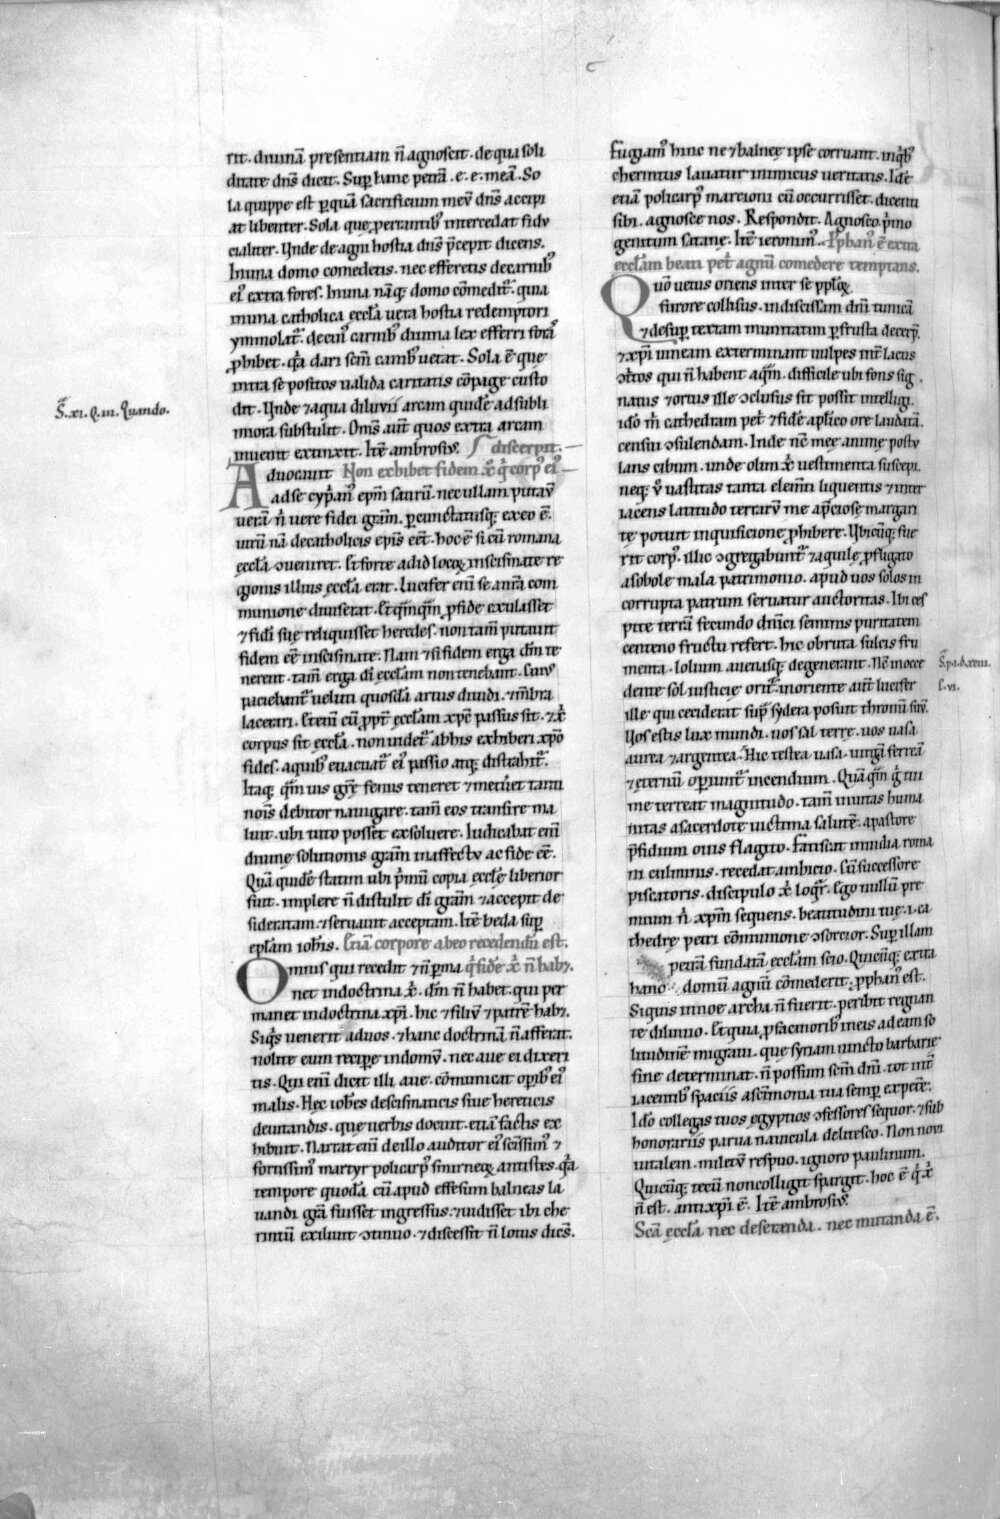 rit. diuinā presentiam n̄ agnoscit. de qua soli
ditate dn̄s dicit. Sup̱ hanc petrā .e. e. meā. So
la quippe est p̱ quā sacrificium meꝝ dn̄s accipi
at libenter. Sola que p̱ errantibꝰ intercedat fidu
cialiter. Unde de agni hostia dn̄s p̄cepit dicens.
In una domo comedetis. nec efferetis de carnibꝰ
eiꝰ extra fores. In una nāq; domo cōmeditͬ. quia
in una catholica eccl̄a uera hostia redemptoris
ymmolatͬ. de cuiꝰ carnibꝰ diuina lex efferri foras
ꝓhibet. q̇a dari sc̄m canibꝰ uetat. Sola ē que
intra se positos ualida caritatis cōpage custo
dit. Unde ⁊ aqua diluuii arcam quidē ad subli
miora sustulit. Om̄s aut̄ quos extra arcam
inuenit extinxit. Itē ambrosiꝰ. discerpit.
Aduocauit Non exhibet fidem x̄ q̇ corpꝰ eiꝰ
ad se cyp̱anꝰ ep̄m satirū. nec ullam putauit
uerā n̄ uere fidei gr̄am. p̱cunctatusq; ex eo ē.
utrū nā de catholicis ep̄is eēt. hoc ē si cū romana
eccl̄a ↄueniret. Et forte ad id locoꝝ in scismate re
gionis illius ęccl̄a erat. Lucifer eni se a nr̄a com
munione diuiserat. Et q̄mq̄m ꝓ fide exulasset
⁊ fidei suę reliquisset heredes. non tam̄ putauit
fidem eē in scismate. Nam ⁊ si fidem erga dm̄ te
nerent. tam̄ erga dī ęccl̄am non tenebant. Cuiꝰ
paciebantͬ ueluti quosdā artus diuidi. ⁊ mēbra
lacerari. Eteni cū ꝓpt̄ ęccl̄am xp̄c passus sit. ⁊ x̄
corpus sit ęccl̄a. non uidetͬ ab his exhiberi xp̄o
fides. a quibꝰ euacuatͬ eiꝰ passio atq; distrahitͬ.
Itaq; q̄m uis gr̄ę fenus teneret ⁊ metuet tanti
nois debitor nauigare. tam̄ eos transire ma
luit. ubi tuto posset exsoluere. Iudicabat eni
diuinę solutionis gr̄am in affectu ac fide eē.
Quā quidē statim ubi p̄mū copia ęccl̄ę liberior
fuit. implere n̄ distulit dī gr̄am ⁊ accepit de
sideratam. ⁊ seruauit acceptam. Itē beda sup̱
ep̄lam ioh̄is. Etiā corpore ab eo recedendū est.
Omnis qui recedit ⁊ n̄ p̱ma q̇ fidē x̄ n̄ habꝫ.
net in doctrina x̄. dm̄ n̄ habet. qui per
manet in doctrina xp̄i. hic ⁊ filiū ⁊ patrē habꝫ.
Siqͥs uenerit ad uos. ⁊ hanc doctrinā n̄ afferat.
nolite eum recipe in domū. nec aue ei dixeri
tis. Qui eni dicit illi aue. cōmunicat opibꝰ eiꝰ
malis. Hec ioh̄es de scismaticis siue hereticis
deuitandis. que uerbis docuit. etiā factis ex
hibuit. Narrat eni de illo auditor eiꝰ sc̄issimꝰ ⁊
fortissimꝰ martyr policarpꝰ smirneꝝ antistes. q̇a
tempore quodā cū apud effesum balneas la
uandi gr̄a fuisset ingressus. ⁊ uidisset ibi che
rintū exiliuit ↄtinuo. ⁊ discessit n̄ lotus dicēs.
Fugiam̄ hinc ne ⁊ balneę ipse corruant. in qͥbꝰ
cherintus lauatur inimicus ueritatis. Idē
etiā policarpꝰ marcioni cū occurrisset. dicenti
sibi. agnosce nos. Respondit. Agnosco p̄mo
genitum satanę. Itē ieronimꝰ. Ꝓphanꝰ ē extra
ęccl̄am beati pet̄ agnū comedere temptans.
Quō uetus oriens inter se pp̄loꝝ
furore collisus. indiscissam dnī tunicā
⁊ desup̱ textam minutatim p̱ frusta decerp̄.
⁊ xp̄i uineam exterminant uulpes int̄ lacus
ↄtͥtos qui n̄ habent aq̄m. difficile ubi fons sig
natus ⁊ ortus ille ↄclusus sit possit intelligi.
idō m̄ cathedram pet̄ ⁊ fidē aplico ore laudatā.
censui ↄsulendam. Inde nc̄ meę animę postu
lans cibum. unde olim x̄ uestimenta suscepi.
neq; ū uastitas tanta elemīti liquentis ⁊ inter
iacens latitudo terrarū me a p̄ciosę margari
tę potuit inquisicione ꝓhibere. Ubicūq; fue
rit corpꝰ. illic ↄgregabuntͬ ⁊ aquilę. ꝓfligato
a sobole mala patrimonio. apud uos solos in
corrupta patrum seruatur auctoritas. Ibi ces
pite terrā fecundo dn̄ici seminis puritatem
centeno fructu refert. hic obruta sulcis fru
menta. lolium auenasq; degenerant. Nc̄ in occi
dente sol iusticię oritͬ. in oriente aut̄ lucifer
ille qui ceciderat sup̱ sydera posuit thronū suū.
Uos estis lux mundi. uos sal terrę. uos uasa
aurea ⁊ argentea. Hic testea uasa. uirgā ferreā
⁊ ęternū operiuntͬ incendium. Quāq̄m g̊ tui
me terreat magnitudo. tam̄ inuitat huma
nitas a sacerdote uictima salutē. a pastore
p̄sidium ouis flagito. Facescat inuidia roma
ni culminis. recedat ambicio. Cū successore
piscatoris. discipulo x̄ loqͬr. Ego nullū pre
mium n̄ xp̄m sequens. beatitudini tuę .i. ca
thedrę petri cōmunione ↄsocior. Sup̱ illam
petrā fundatā ęccl̄am scio. Quicūq; extra
hanc domū agnū cōmederit. ꝓphanꝰ est.
Siquis in noe archa n̄ fuerit. peribit regnan
te diluuio. Et quia ꝓ facinoribꝰ meis ad eam so
litudinē migraui. que syriam iuncto barbarię
fine determinat. n̄ possum sc̄m dnī. tot int̄
iacentibꝰ spaciis a sc̄imonia tua semp̱ expetē.
Idō collegas tuos ęgyptios ↄfessores sequor. ⁊ sub
honorariis parua nauicula delitesco. Non noui
uitalem. miletū respuo. ignoro paulinum.
Quicūq; tecū non colligit spargit. hoc ē q̇ x̄
n̄ est. antixp̄i ē. Itē ambrosiꝰ.
Sc̄a ęccl̄a nec deserenda. nec mutanda ē.
S̄. xi. Q. iii. Quando.
C. vi.